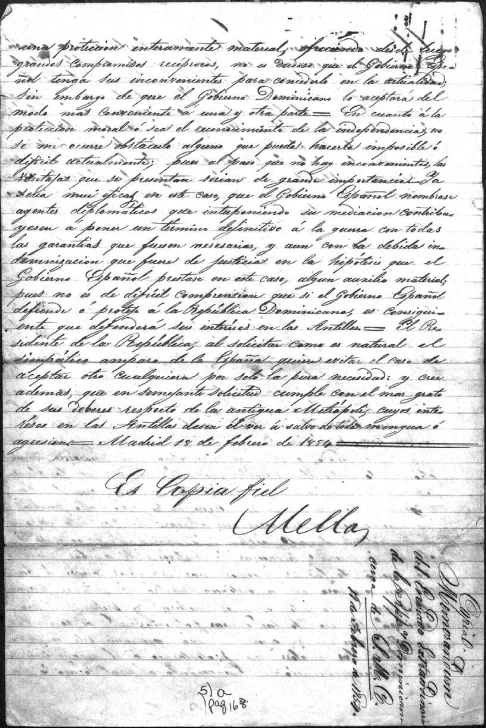 una proteccion interesante material, ofreciendo desde luego
grandes compromisos reciprocos, no es dudoso que el Gobierno Espa
ñol tenga sus inconvenientes para concederle en la actualidad,
sin embargo de que el Gobierno Dominicano lo aceptara del
modo mas conveniente a una y otra parte= En cuanto á la
proteccion moral ó sea el reconocimiento de la independencia, no
se me ocurre obstáculo alguno que pueda hacerla imposible ó
dificil actualmente; pues al paso que no hay inconvenientes, las
ventajas que se presentan serian de grande importancia. Ya
seria muy eficaz en este caso, que el Gobierno Español nombrase
agentes diplomáticos que interponiendo su mediacion contribu
yesen a poner un termino definitivo á la guerra con todas
las garantias que fuesen necesarias, y aun con la debida in
demnizacion que fuere de justicia en la hipótesis que el
Gobierno Español prestase en este caso, algun auxilio material,
pues no es de dificil comprension que si el Gobierno Español
defiende ó proteje á la República Dominicana, es consigui
ente que defenderá sus intereses en las Antillas= El Pre
sidente de la República, al solicitar como es natural el
simpático amparo de la España quiere evitar el caso de
aceptar otro cualquiera por solo la pura necesidad; y cree
ademas, que en semejante solicitud cumple con el mas grato
de sus deberes respecto de la antigua Metrópoli, cuyos inte
reses en las Antillas desea el ver á salvo de toda mengua ó
agresion= Madrid 18 de febrero de 1854
Es Copia fiel
Mella
Copia D
Memorandum
del Enviado Estraordino
de la Repca Dominicana
cerca de S.M.C.
18 de Febrero de 1854.
5) a
pag 168